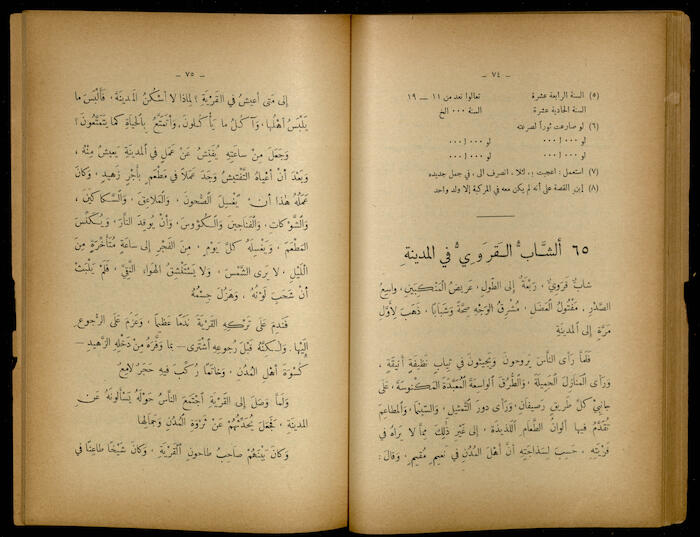 — ٧٤ —
(٥) السنة الرابعة عشرة تعالوا نعد من ١١ — ١٩
السنة الحادية عشرة السنة ... الخ
(٦) لو صارعت ثوراً لصرعته
لو ... ل ... لو ... ل ...
لو ... ل ... لو ... ل ...
(٧) استعمل : اعجبت بـ، لئلا ، انصرف الى ، في جمل جديده
(٨) ابنِ القصة على أنه لم يكن معه في المركبة إلا ولد واحد
٦٥ ألشَّابُّ الْقَرَوِيُّ في المدينةِ
شابٌّ قَرَوِيٌّ ، رَبْعَةٌ إلى الطّولِ، عَريضُ المَنْكِبَينِ، واسِعُ
الصَّدْرِ ، مَفْتُولُ العَضَل ، مُشْرِقُ الوَجْهِ صِحَّةً وشَبابًا ، ذَهَبَ لِأَوَّلِ
مَرَّةٍ إلى المدينَةِ
فلمّا رأى النّاسَ يَروحونَ ويَجيئونَ في ثِيابٍ نَظيفَةٍ أَنيقَةٍ ،
ورَأى المَنازِلَ الجَميلَةَ ، والطُّرُقَ الواسِعَةَ المُعَبَّدَةَ المَكْنوسَةَ، عَلَى
جانِبَيْ كلِّ طَريقٍ رَصيفانِ، ورَأى دورَ التَّمثيلِ، والسّينَما، والمَطاعِمَ
تُقَدَّمُ فيها ألوَانُ الطَّعامِ اللَّذيذَةُ ، إلى غَيْرِ ذَلِكَ مِمّا لا يَراهُ في
قَرْيَتِهِ ، حَسِبَ لِسَذاجَتِهِ أنَّ أهْلَ المُدُنِ في نَعيمٍ مُقيمٍ . وقالَ :
— ٧٥ —
إلى مَتى أعيشُ في القَرْيَةِ ؟ لِماذا لا أَسْكُنُ المدينَةَ ، فَأَلْبَسَ ما
يَلْبَسُ أهْلُها، وَآكُلُ ما يَأْكُلونَ، وأتمَتَّعَ بِالحَياةِ كما يَتَمَتَّعُونَ ؟
وَجَعَلَ مِنْ ساعَتِهِ يُفَتِّشُ عَنْ عَمَلٍ في المَدينَةِ يَعيشُ مِنْهُ ،
وَبَعْدَ أنْ أعْياهُ التَّفْتيشُ وَجَدَ عَمَلاً في مَطْعَمٍ بِأَجْرٍ زَهيدٍ . وكانَ
عَمَلُهُ هٰذا أن يَغْسِلَ الصُّحونَ ، والمَلاعِقَ ، والسَّكاكينَ ،
والشَّوْكاتِ ، والفَناجينَ والكُؤوسَ، وأنْ يوقِدَ النّارَ، ويُكَنِّسَ
المَطْعَمَ ، ويَغْسِلَهُ كلَّ يَومٍ . مِنَ الفَجْرِ إلى ساعَةٍ مُتَأَخِّرَةٍ مِنَ
اللَّيْلِ، لا يَرى الشَّمْسَ، ولا يَسْتَنْشِقُ الهَواءَ النَّقِيَّ ، فَلَمْ يَلْبَثْ
أنْ شَحَبَ لَوْنُهُ ، وهَزُلَ جِسْمُهُ
فَنَدِمَ عَلَى تَرْكِهِ القَرْيَةَ نَدَمًا عَظيمًا ، وعَزَمَ عَلَى الرُّجوعِ
إلَيْها . ولٰكِنَّهُ قَبْلَ رُجوعِهِ اُشْتَرى — بما وَفَّرَهُ مِنْ دَخْلِهِ الزَّهيدِ —
كُسْوَةَ أهْلِ المُدُنِ ، وخاتَمًا رُكِّبَ فيهِ حَجَرٌ لامِعٌ
ولَمّا وَصَلَ إلى القَرْيَةِ اُجْتَمَعَ النّاسُ حَوْلَهُ يَسْأَلونَهُ عَنِ
المدينَةِ ، فَجَعَلَ يُحَدِّثُهُمْ عَنْ ثَرْوَةِ المُدُنِ وجَمالِها
وكانَ بَيْنَهُمْ صاحِبُ طاحونِ القَرْيَةِ ، وكانَ شَيْخًا طاعِنًا في